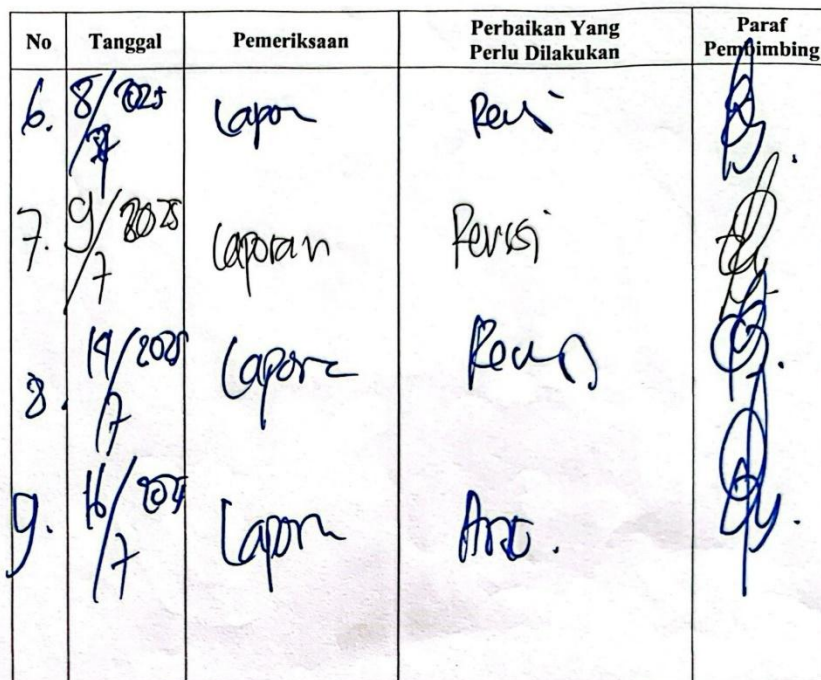 No Tanggal Pemeriksaan Perbaikan Yang Perlu Dilakukan Paraf Pembimbing
6. 8/7 2025 Lapor Revisi
7. 9/7 2025 Laporan Revisi
8. 14/7 2025 Laporan Revisi
9. 16/7 Laporan